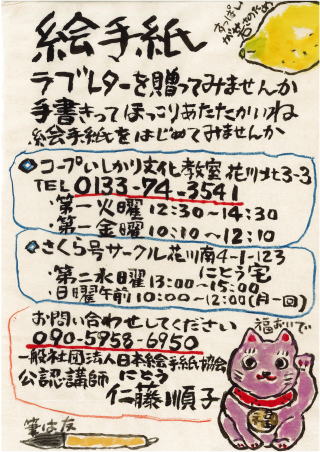 すっぱし
が若さのため
絵手紙
ラブレターを贈ってみませんか
手書きってほっこりあたたかいね
絵手紙をはじめてみませんか
コープいしかり文化教室 花川北3-3
TEL 0133-74-3541
・第一火曜 12:30~14:30
・第一金曜 10:10~12:10
さくら号サークル 花川南4-1-123
にとう宅
・第二水曜 13:00~15:00
・日曜午前 10:00~12:00(月一回)
お問い合わせしてください
090-5958-6950
福おいで
一般社団法人日本絵手紙協会
公認講師 にとう
仁藤順子
筆は友